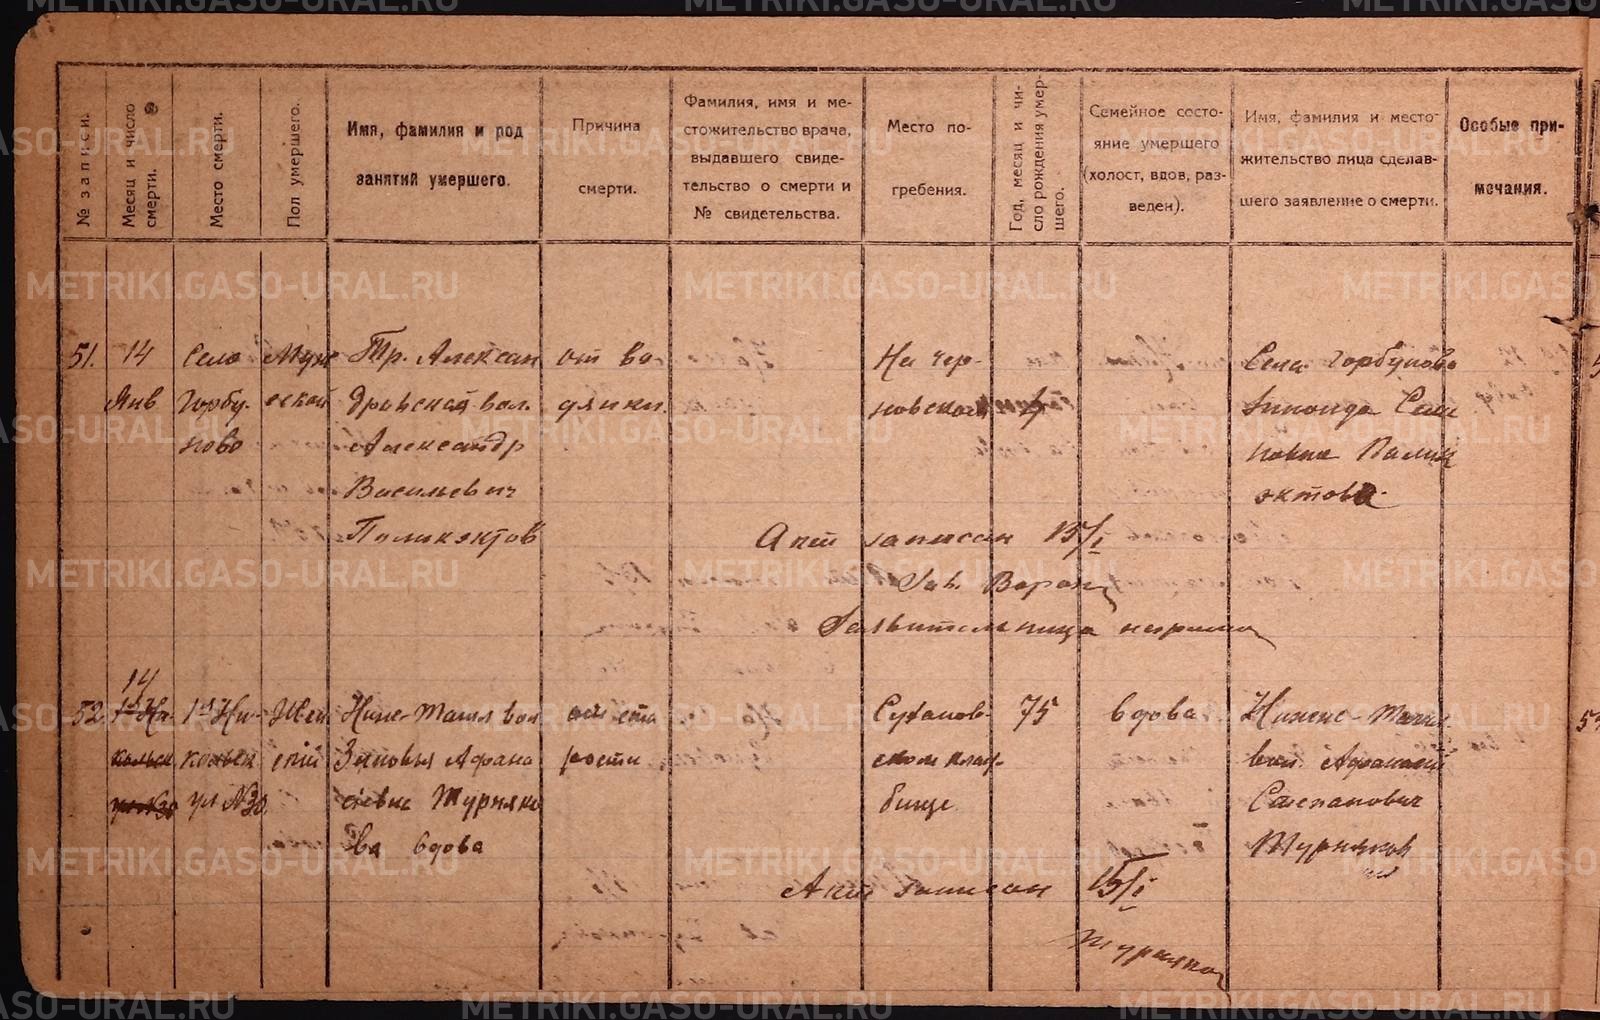 № записи.
Месяц и число
смерти.
Место смерти.
Пол умершего.
Имя, фамилия и род
занятий умершего.
Причина
смерти.
Фамилия, имя и ме-
стожительство врача,
выдавшего свиде-
тельство о смерти и
№ свидетельства.
Место по-
гребения.
Год, месяц и чи-
сло рождения умер-
шего.
Семейное состо-
яние умершего
(холост, вдов, раз-
веден).
Имя, фамилия и место-
жительство лица сделав-
шего заявление о смерти.
Особые при-
мечания.
51.
14
Янв
Село
Горбу-
ново
Муж
еской
Тр. Алексан
дровской вол.
Александр
Васильевич
Поликэктов
от во
дянки.
На чер-
новском
Села Горбуново
Семе
новна Поли
эктова.
Акт записан 15/I
Зав. Ворон
Заявительница неграмо
52
14
1я Ни-
кольск
ул №30
1я Ни-
кольск
ул №30.
Жен
ский
Ниже-Тагил вол
Зиновья Афана
сьевна Турняко
ва вдова
от ста
рости
Суханов-
ском клад-
бище
75
вдова
Нижне-Тагил
вол. Афанасий
Степанович
Турняков
Акт записан 15/I
Турняко
METRIKI.GASO-URAL.RU